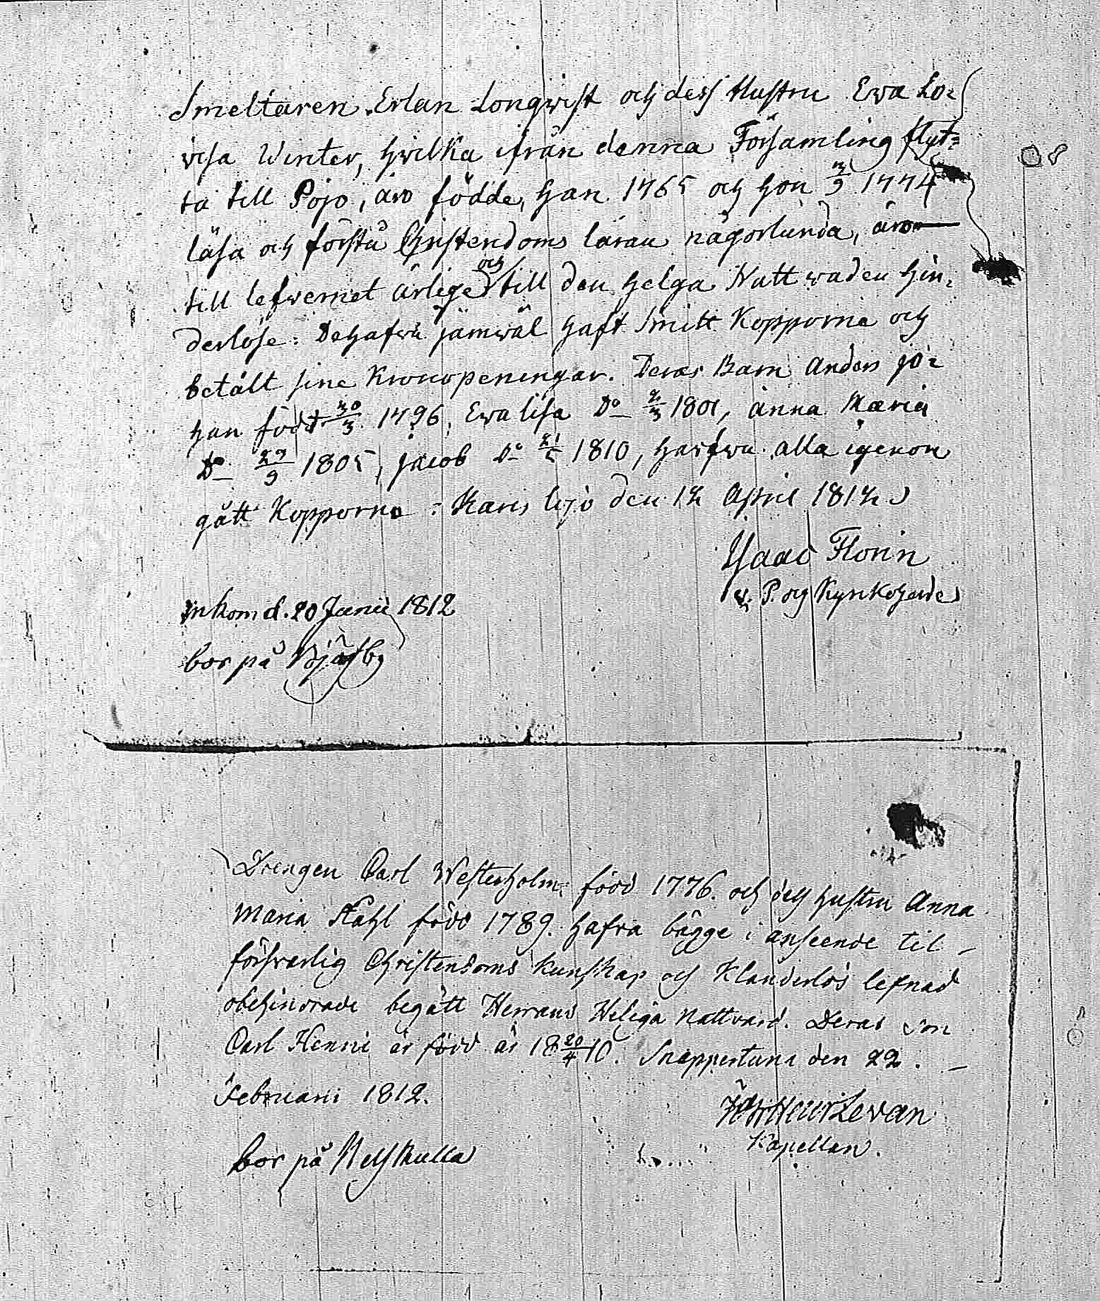 Smeltaren Erlan Lonqwist och dess Hustru Ewa Lo=
visa Winter, hwilka ifrån denna Församling flyt=
ta till Pojo, äro födde, han 1765 och hon 1774
läsa och förstå Christendoms läran någorlunda, äro
till lefwernet ärlige och till den helga Nattwarden hin=
derlöse: De hafwa jämwäl haft Smitt Kopporne och
betalt sine Kronopeningar. Deras Barn Anders Jo=
han född 30/3 1796, Ewa Lisa Do 2/3 1801, Anna Maria
Do 29/9 1805, Jacob Do 21/5 1810, hafwa alla igenom
gått Kopporna: Karis Lojo den 12 April 1812
Isaac Florin
v. P. och Kyrkoherde
Inkom d. 20 Junii 1812
bor på
Drengen Carl Westerholm född 1776. och dess hustru Anna
Maria Stahl född 1789. hafva bägge i anseende til
försvarlig Christendoms kunskap och Klanderlös lefnad
obehindrade begått Herrans Heliga Nattvard. Deras son
Carl Henric är född år 18 20/4 10. Snappertuna den 22.
Februarii 1812.
Kapellan.
bor på